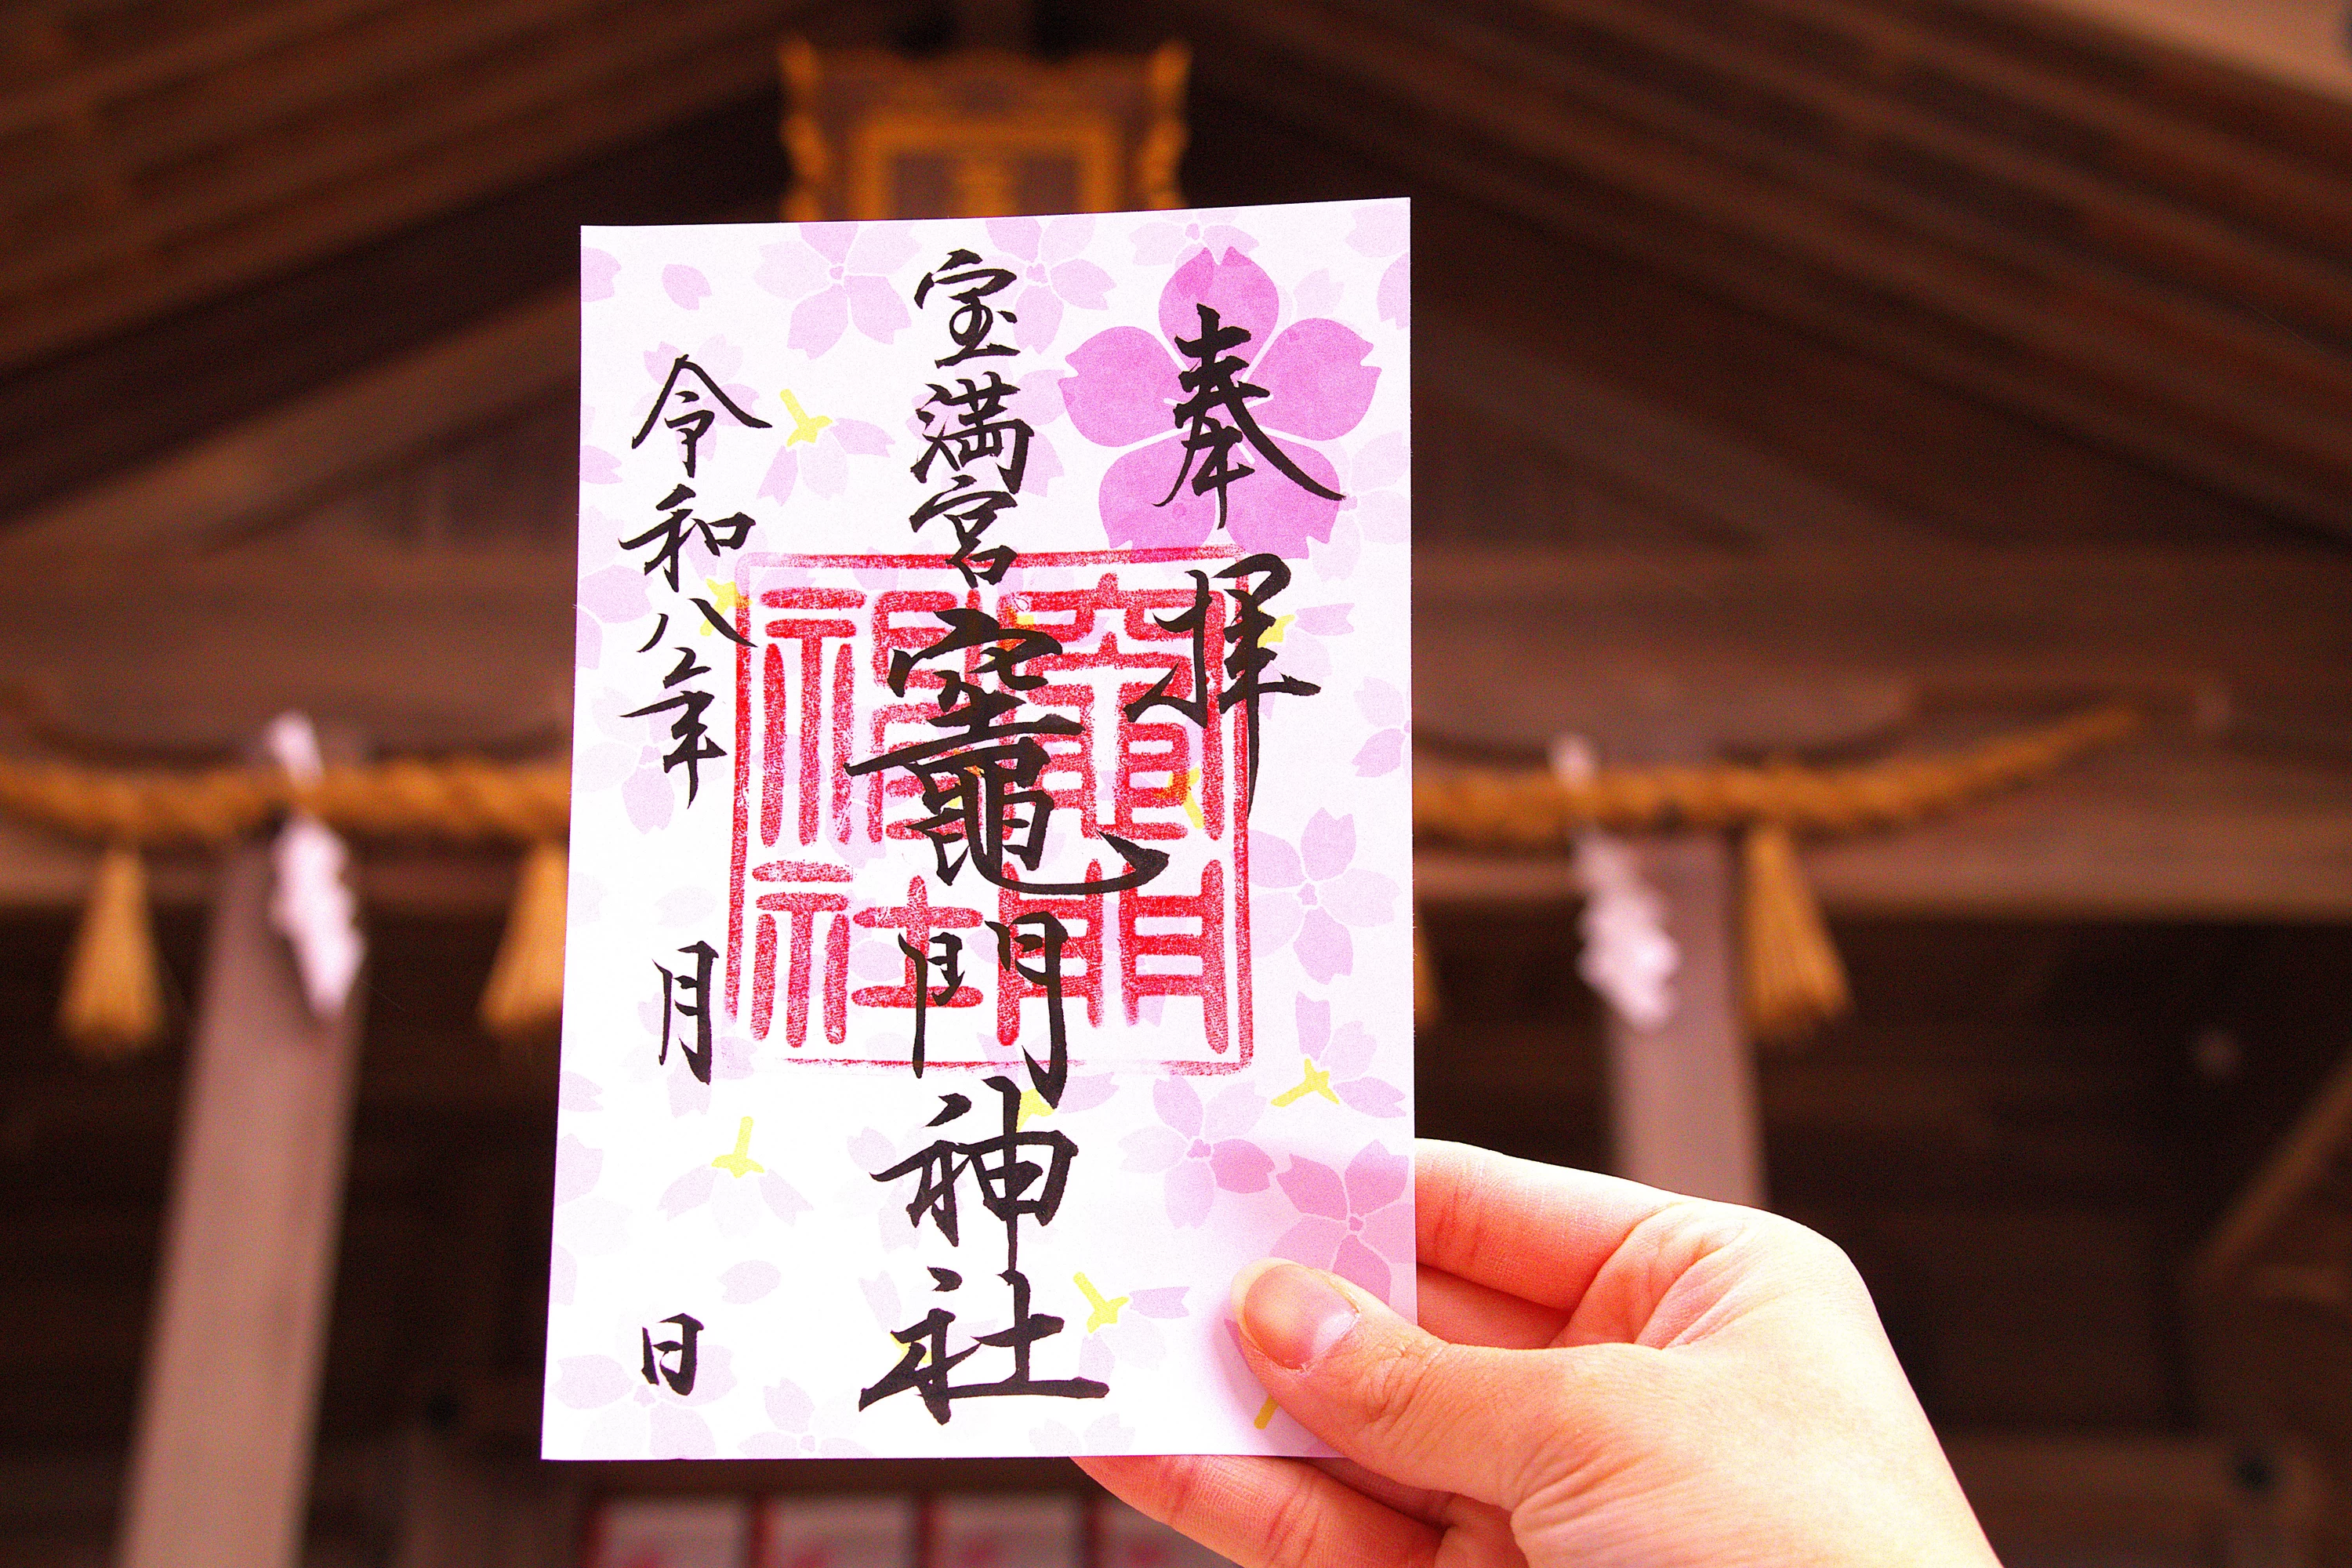 奉拝
宝満宮
竈門神社
竈門
神社
令和八年
月
日